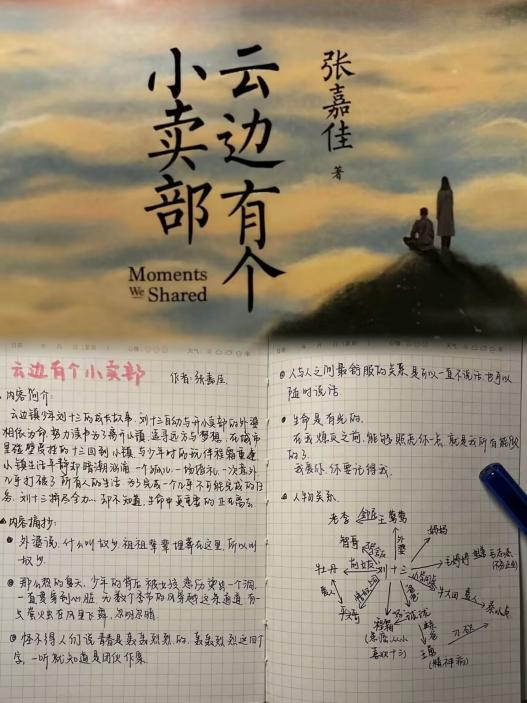 云边有个
小卖部
张嘉佳
著
Moments
We Shared
云边有个小卖部
作者:张嘉佳
内容简介:
云边镇少年刘十三的成长故事。刘十三自幼与开小卖部的外婆
相依为命。努力读书为了离开小镇,追寻远方与梦想。在城市
里碰壁受挫的十三回到小镇,与少年时的玩伴程霜重逢。
小镇生活平静却暗潮汹涌,一个孤儿,一场婚礼,一次意外,
几乎打破了所有人的生活。为了完成一个几乎不可能完成的任
务,刘十三拼尽全力,却不知道,生命中更重要的正在离去。
内容摘抄:
外婆说,什么叫故乡,祖祖辈辈埋葬在这里,所以叫
故乡。
那么热的夏天,少年的后背被女孩悲伤烫出一个洞,
一直贯穿到心脏,无数个季节的风穿越这条通道,有一
点萤火虫在风里飞舞,忽明忽暗
怪不得人们说青春是轰轰烈烈的,轰轰烈烈这四个
字,一听就知道是团伙作案
人与人之间最舒服的关系,是可以一直不说话,也可以
随时说话。
生命是有光的。
在我熄灭之前,能够照亮你一点,就是我所有能做
的了。
我爱你,你要记得我。
人物关系
老李
王莺莺
外婆
智哥
妈妈
牡丹
刘十三
程霜
球球
毛婷婷
牛大田
秦小贞
王勇
(精神病)
喜欢十三)